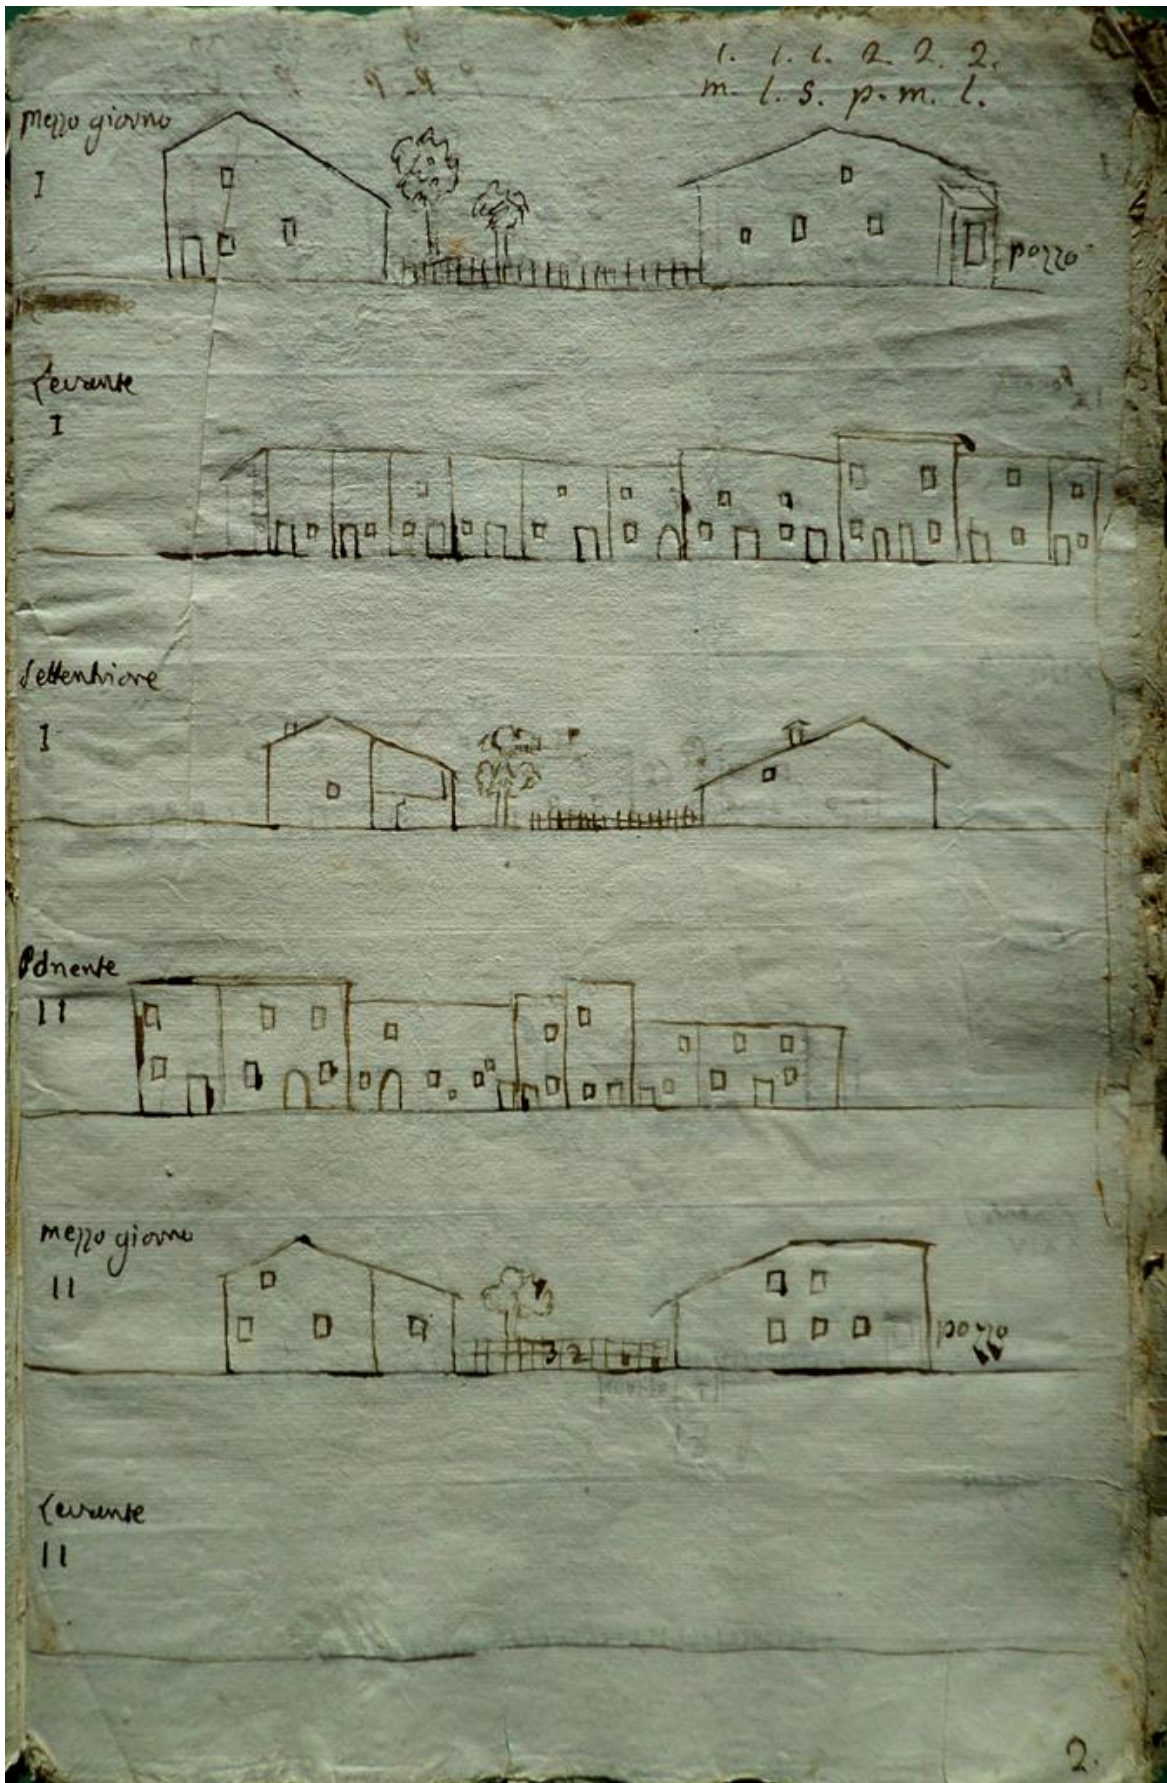 1. 1. 1. 2. 2. 2.
m. l. s. p. m. l.
mezzo giorno
I
pozzo
Levante
I
Settentrione
I
Ponente
II
mezzo giorno
II
32
pozzo
Levante
II
2.